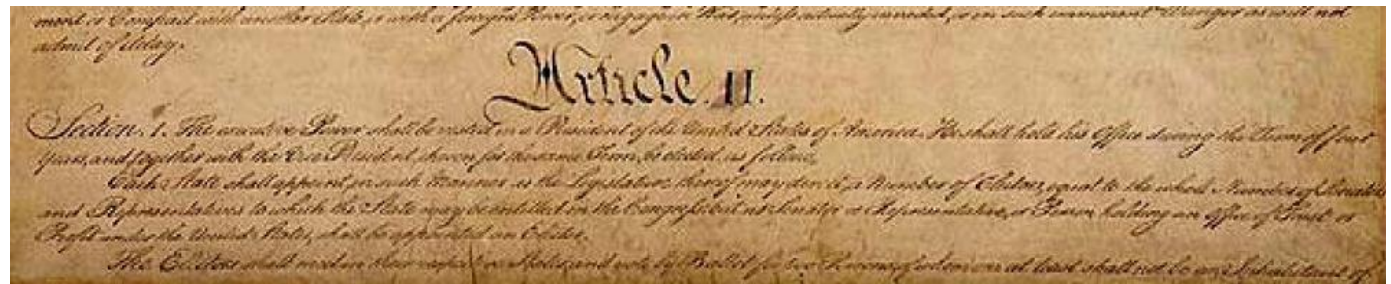 ment or Compact with another State, or with a foreign Power, or engage in War, unless actually invaded, or in such imminent Danger as will not
admit of delay.
Article. II.
Section. 1. The executive Power shall be vested in a President of the United States of America. He shall hold his Office during the Term of four
Years, and, together with the Vice President, chosen for the same Term, be elected, as follows
Each State shall appoint, in such Manner as the Legislature thereof may direct, a Number of Electors, equal to the whole Number of Senators
and Representatives to which the State may be entitled in the Congress: but no Senator or Representative, or Person holding an Office of Trust or
Profit under the United States, shall be appointed an Elector.
The Electors shall meet in their respective States, and vote by Ballot for two Persons, of whom one at least shall not be an Inhabitant of